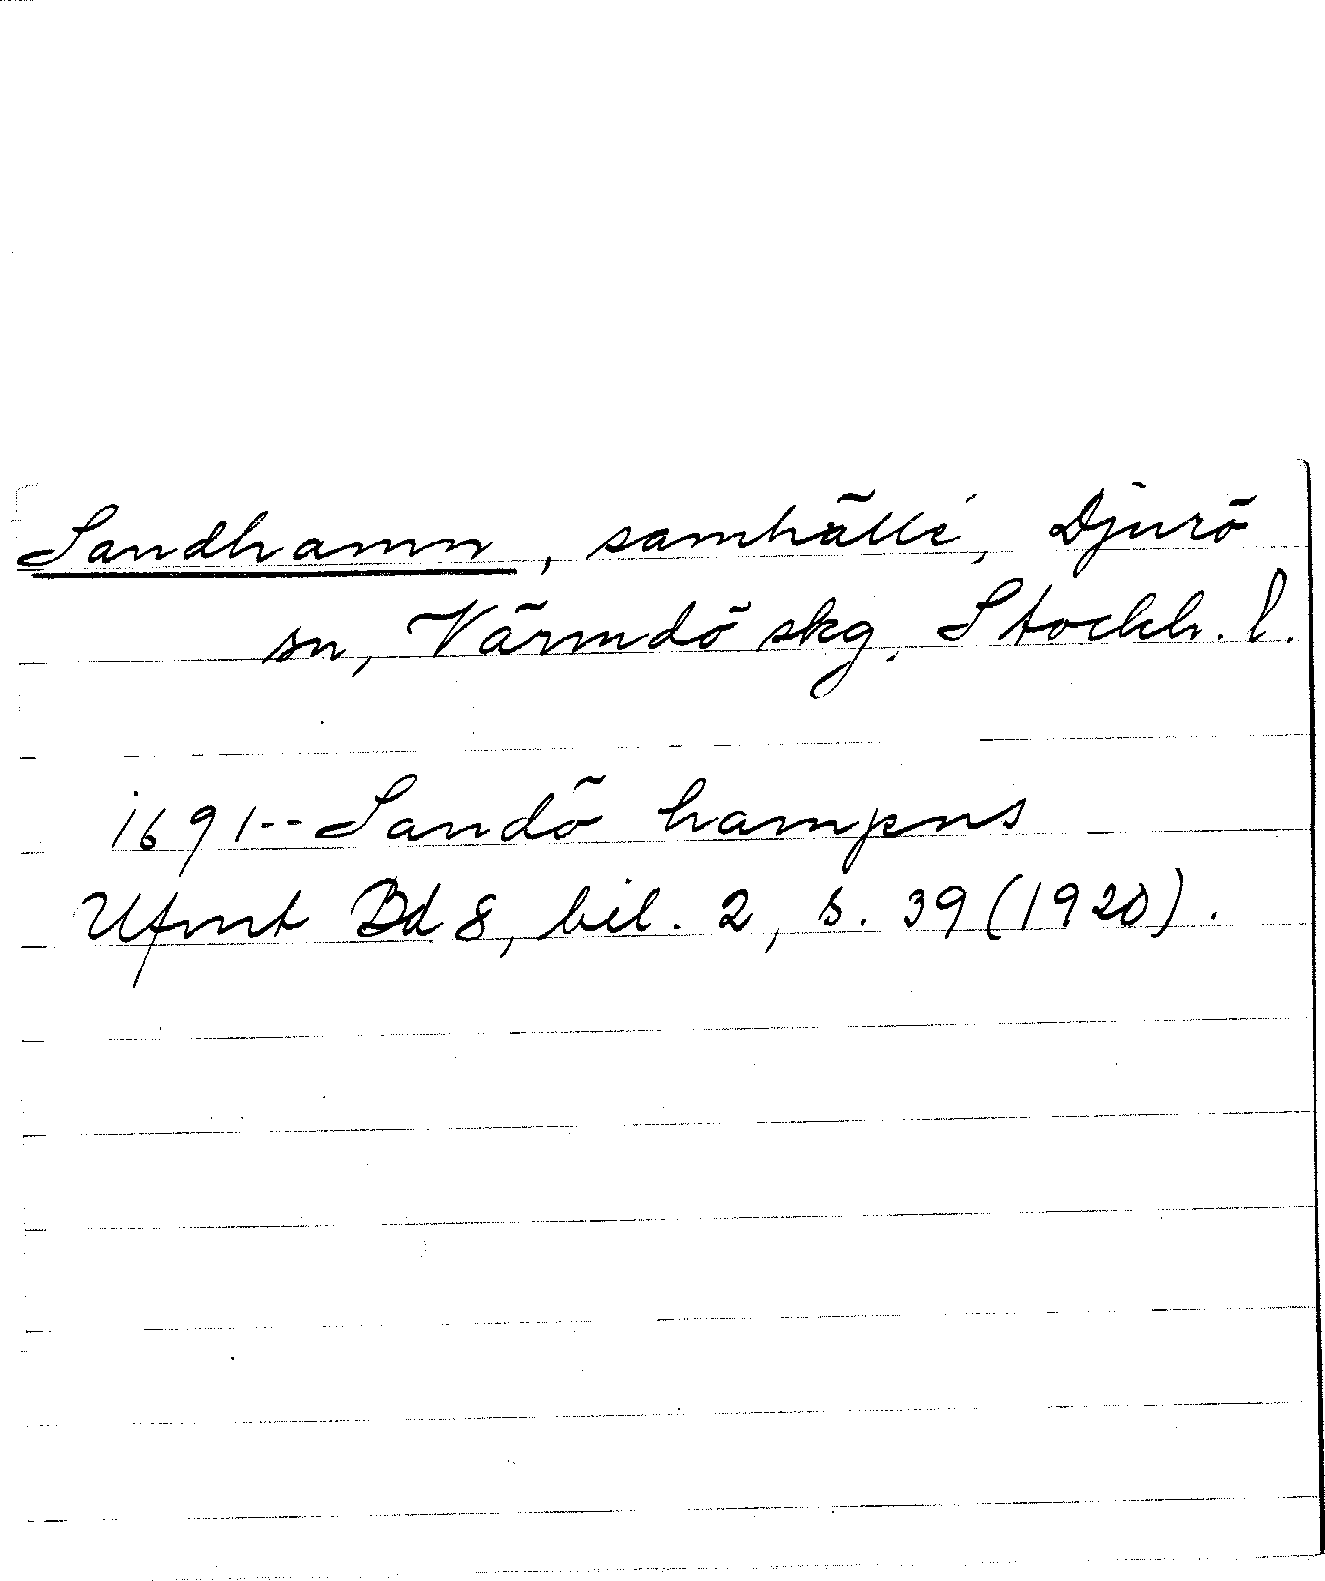 Sandhamn, samhälle, Djurö
sn, Värmdö skg, Stockh. l.
1691-- Sandö hampns
Ufmt Bd 8, bil. 2, s. 39 (1920).